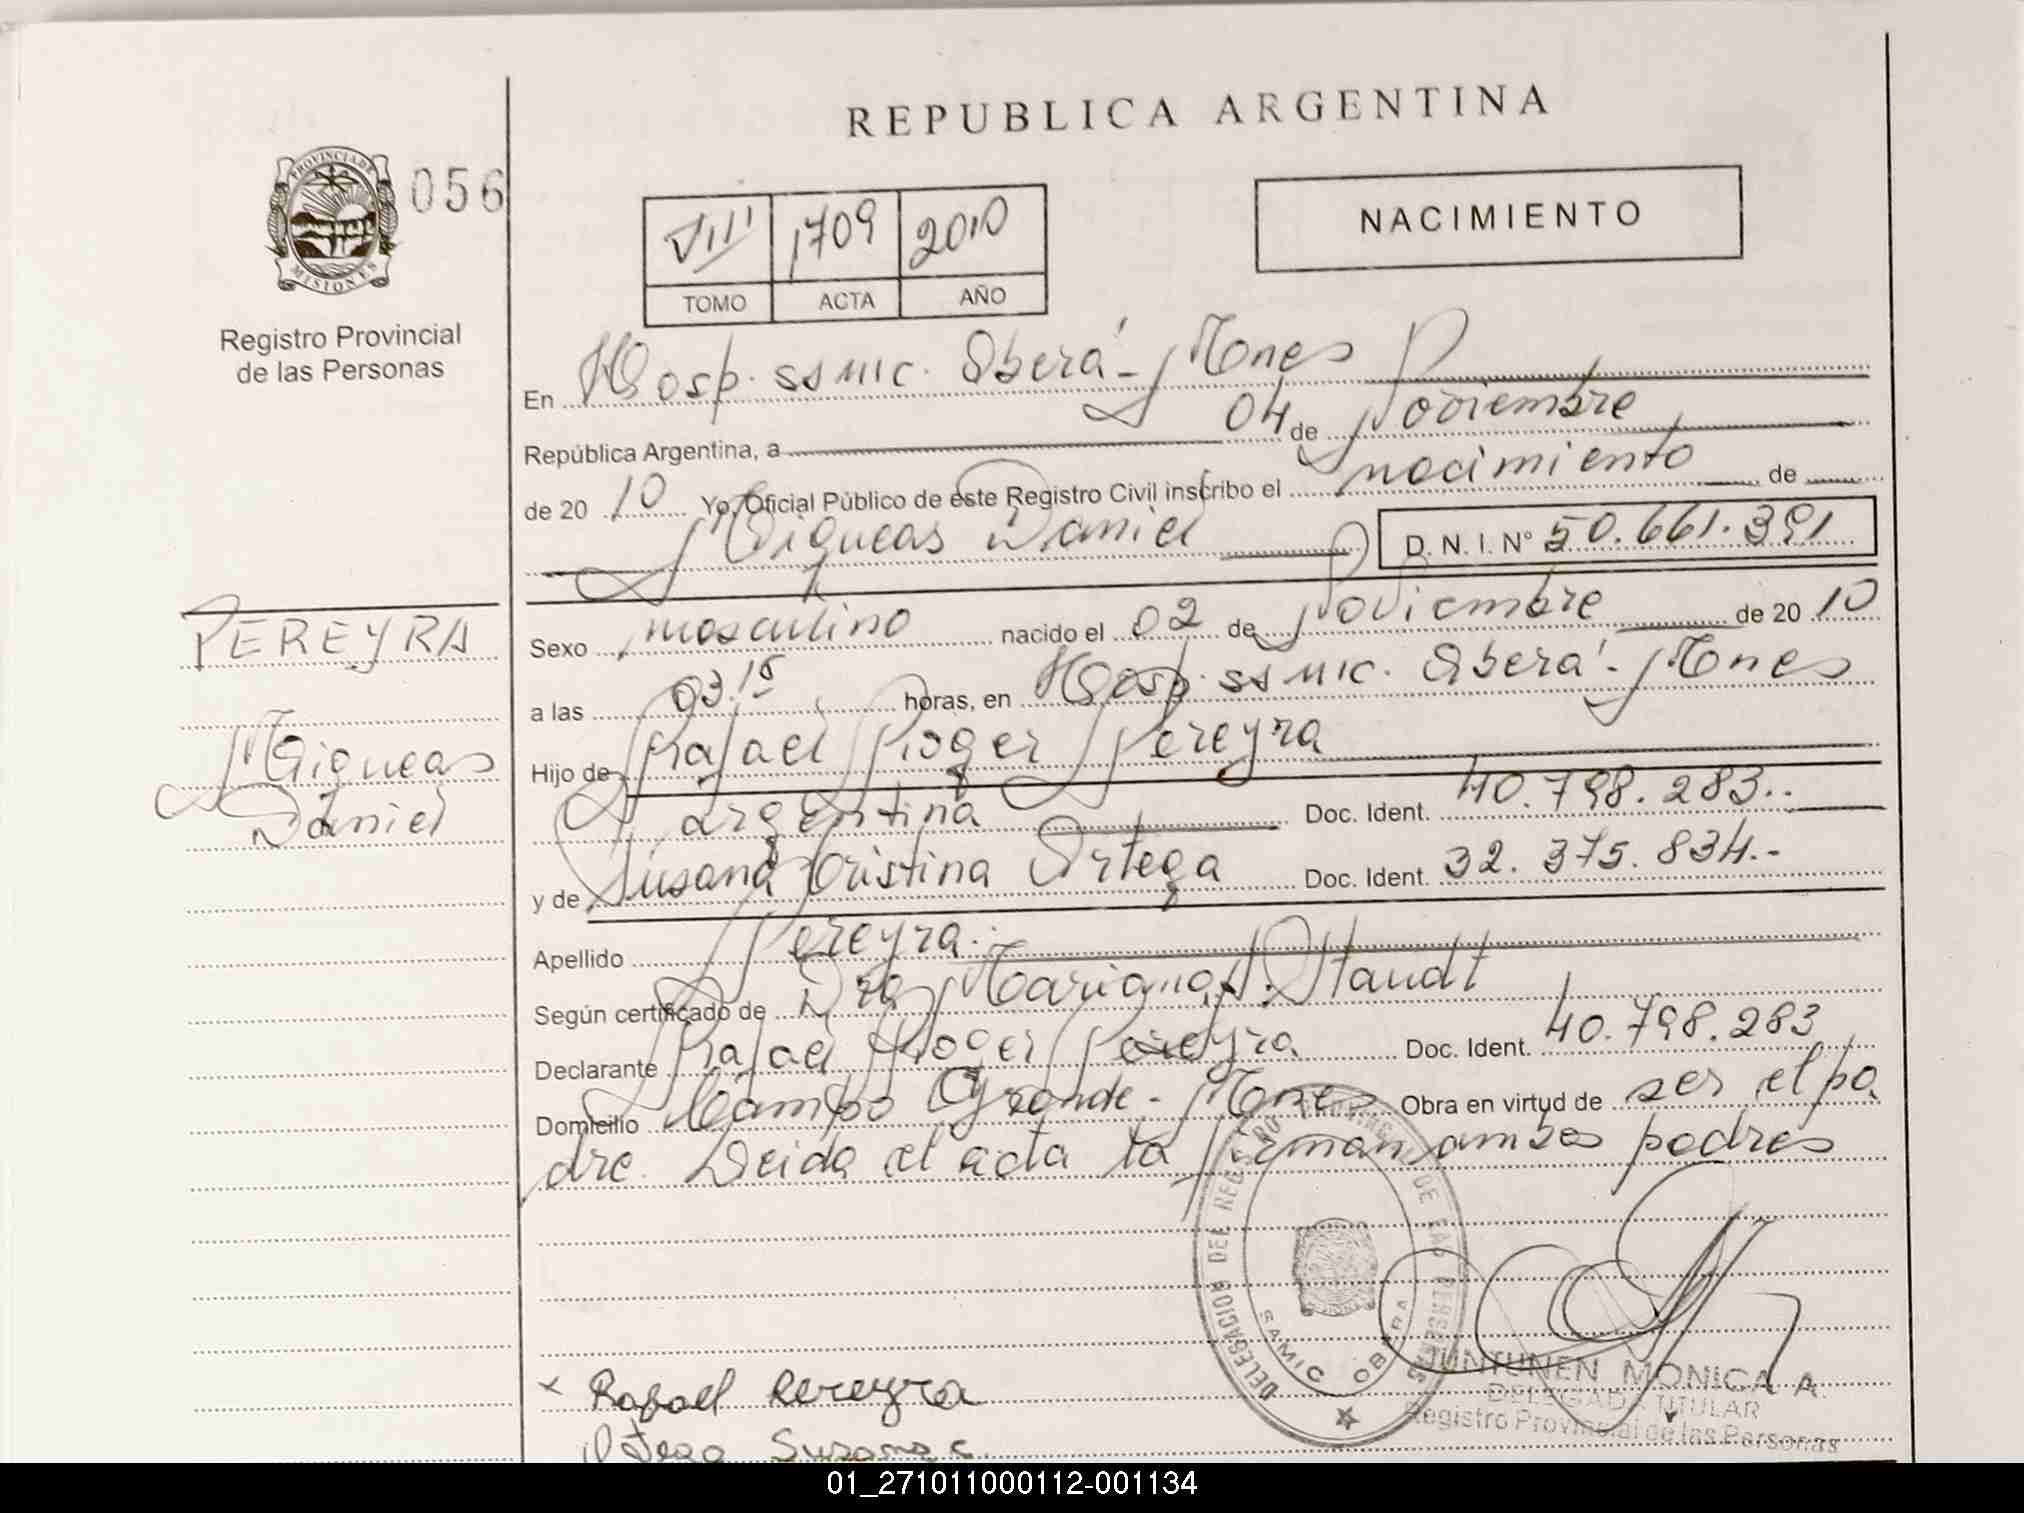 REPUBLICA ARGENTINA
PROVINCIA DE
MISIONES
056
Registro Provincial
de las Personas
VIII 1709 2010
TOMO ACTA AÑO
NACIMIENTO
En Hosp. SSMIC. Oberá - Mnes
República Argentina, a 04 de Noviembre
de 20 10 Yo, Oficial Público de este Registro Civil inscribo el nacimiento de
Miqueas Daniel D. N. I. N° 50.661.391
PEREYRA
Miqueas
Daniel
Sexo masculino nacido el 02 de Noviembre de 20 10
a las 03.15 horas, en Hosp. SSMIC. Oberá - Mnes
Hijo de Rafael Roger Pereyra
argentina Doc. Ident. 40.798.283..
y de Susana Cristina Ortega Doc. Ident. 32.375.834.-
Apellido Pereyra.
Según certificado de Dra Mariana Staudt
Declarante Rafael Roger Pereyra Doc. Ident. 40.798.283
Domicilio Campo Grande - Mnes Obra en virtud de ser el pa
dre. Leida el acta la firman ambos padres
DELEGACION DEL REGISTRO PROVINCIAL DE LAS PERSONAS
SAMIC OBERA
JUNTUNEN MONICA A.
DELEGADA TITULAR
Registro Provincial de las Personas
x Rafael Pereyra
Ortega Susana C.
01_271011000112-001134